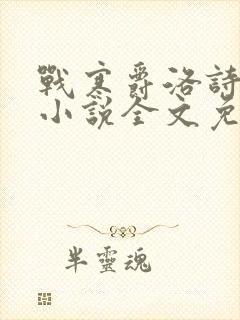 戰寒爵洛詩
小說全文免
半靈魂